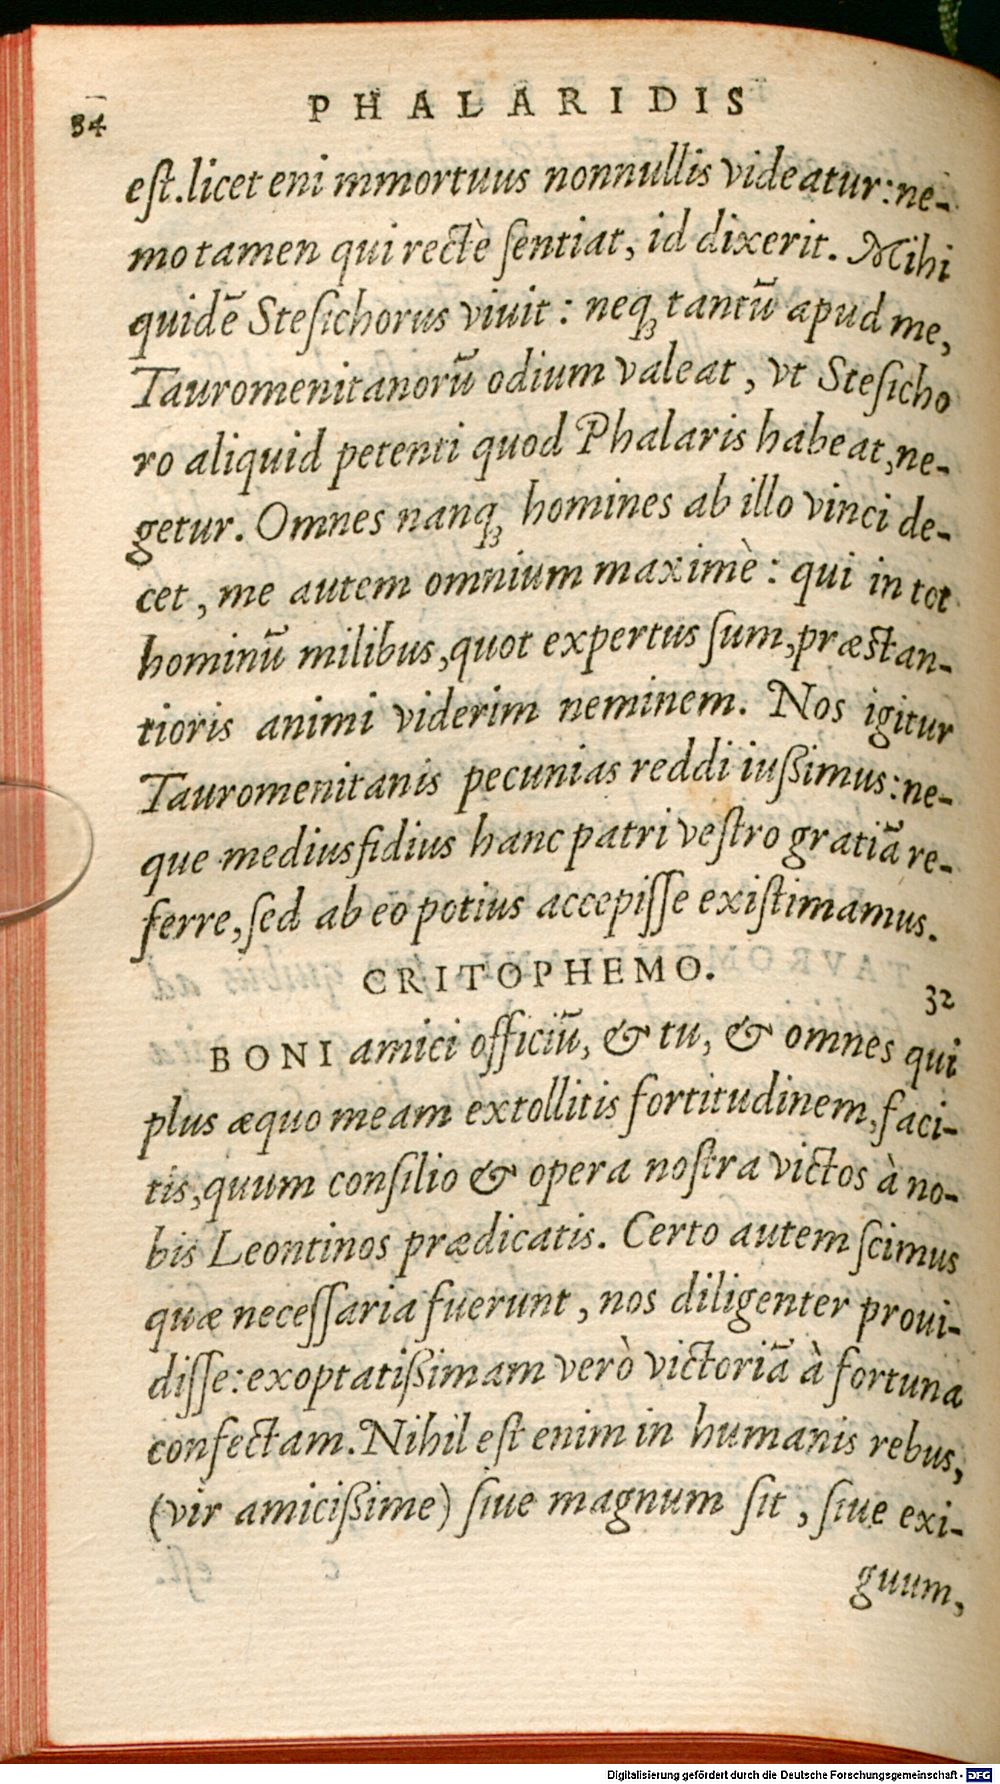 34
PHALARIDIS
eſt.licet eni mmortuus nonnullis videatur:ne-
mo tamen qui rectè ſentiat, id dixerit. Mihi
quidẽ Steſichorus viuit: neqꝫ tantũ apud me,
Tauromenitanorũ odium valeat, vt Steſicho
ro aliquid petenti quod Phalaris habeat,ne-
getur. Omnes nanqꝫ homines ab illo vinci de-
cet, me autem omnium maximè: qui in tot
hominũ milibus,quot expertus ſum,præstan-
tioris animi viderim neminem. Nos igitur
Tauromenitanis pecunias reddi iußimus:ne-
que mediusfidius hanc patri veſtro gratiã re-
ferre,ſed ab eo potius accepiſſe exiſtimamus.
CRITOPHEMO.
32
BONI amici officiũ, & tu, & omnes qui
plus æquo meam extollitis fortitudinem,faci-
tis,quum conſilio & opera noſtra victos à no-
bis Leontinos prædicatis. Certo autem ſcimus
quæ neceſſaria fuerunt, nos diligenter proui-
diſſe:exoptatißimam verò victoriã à fortuna
confectam. Nihil eſt enim in humanis rebus,
(vir amicißime) ſiue magnum ſit, ſiue exi-
guum,
Digitalisierung gefördert durch die Deutsche Forschungsgemeinschaft - DFG